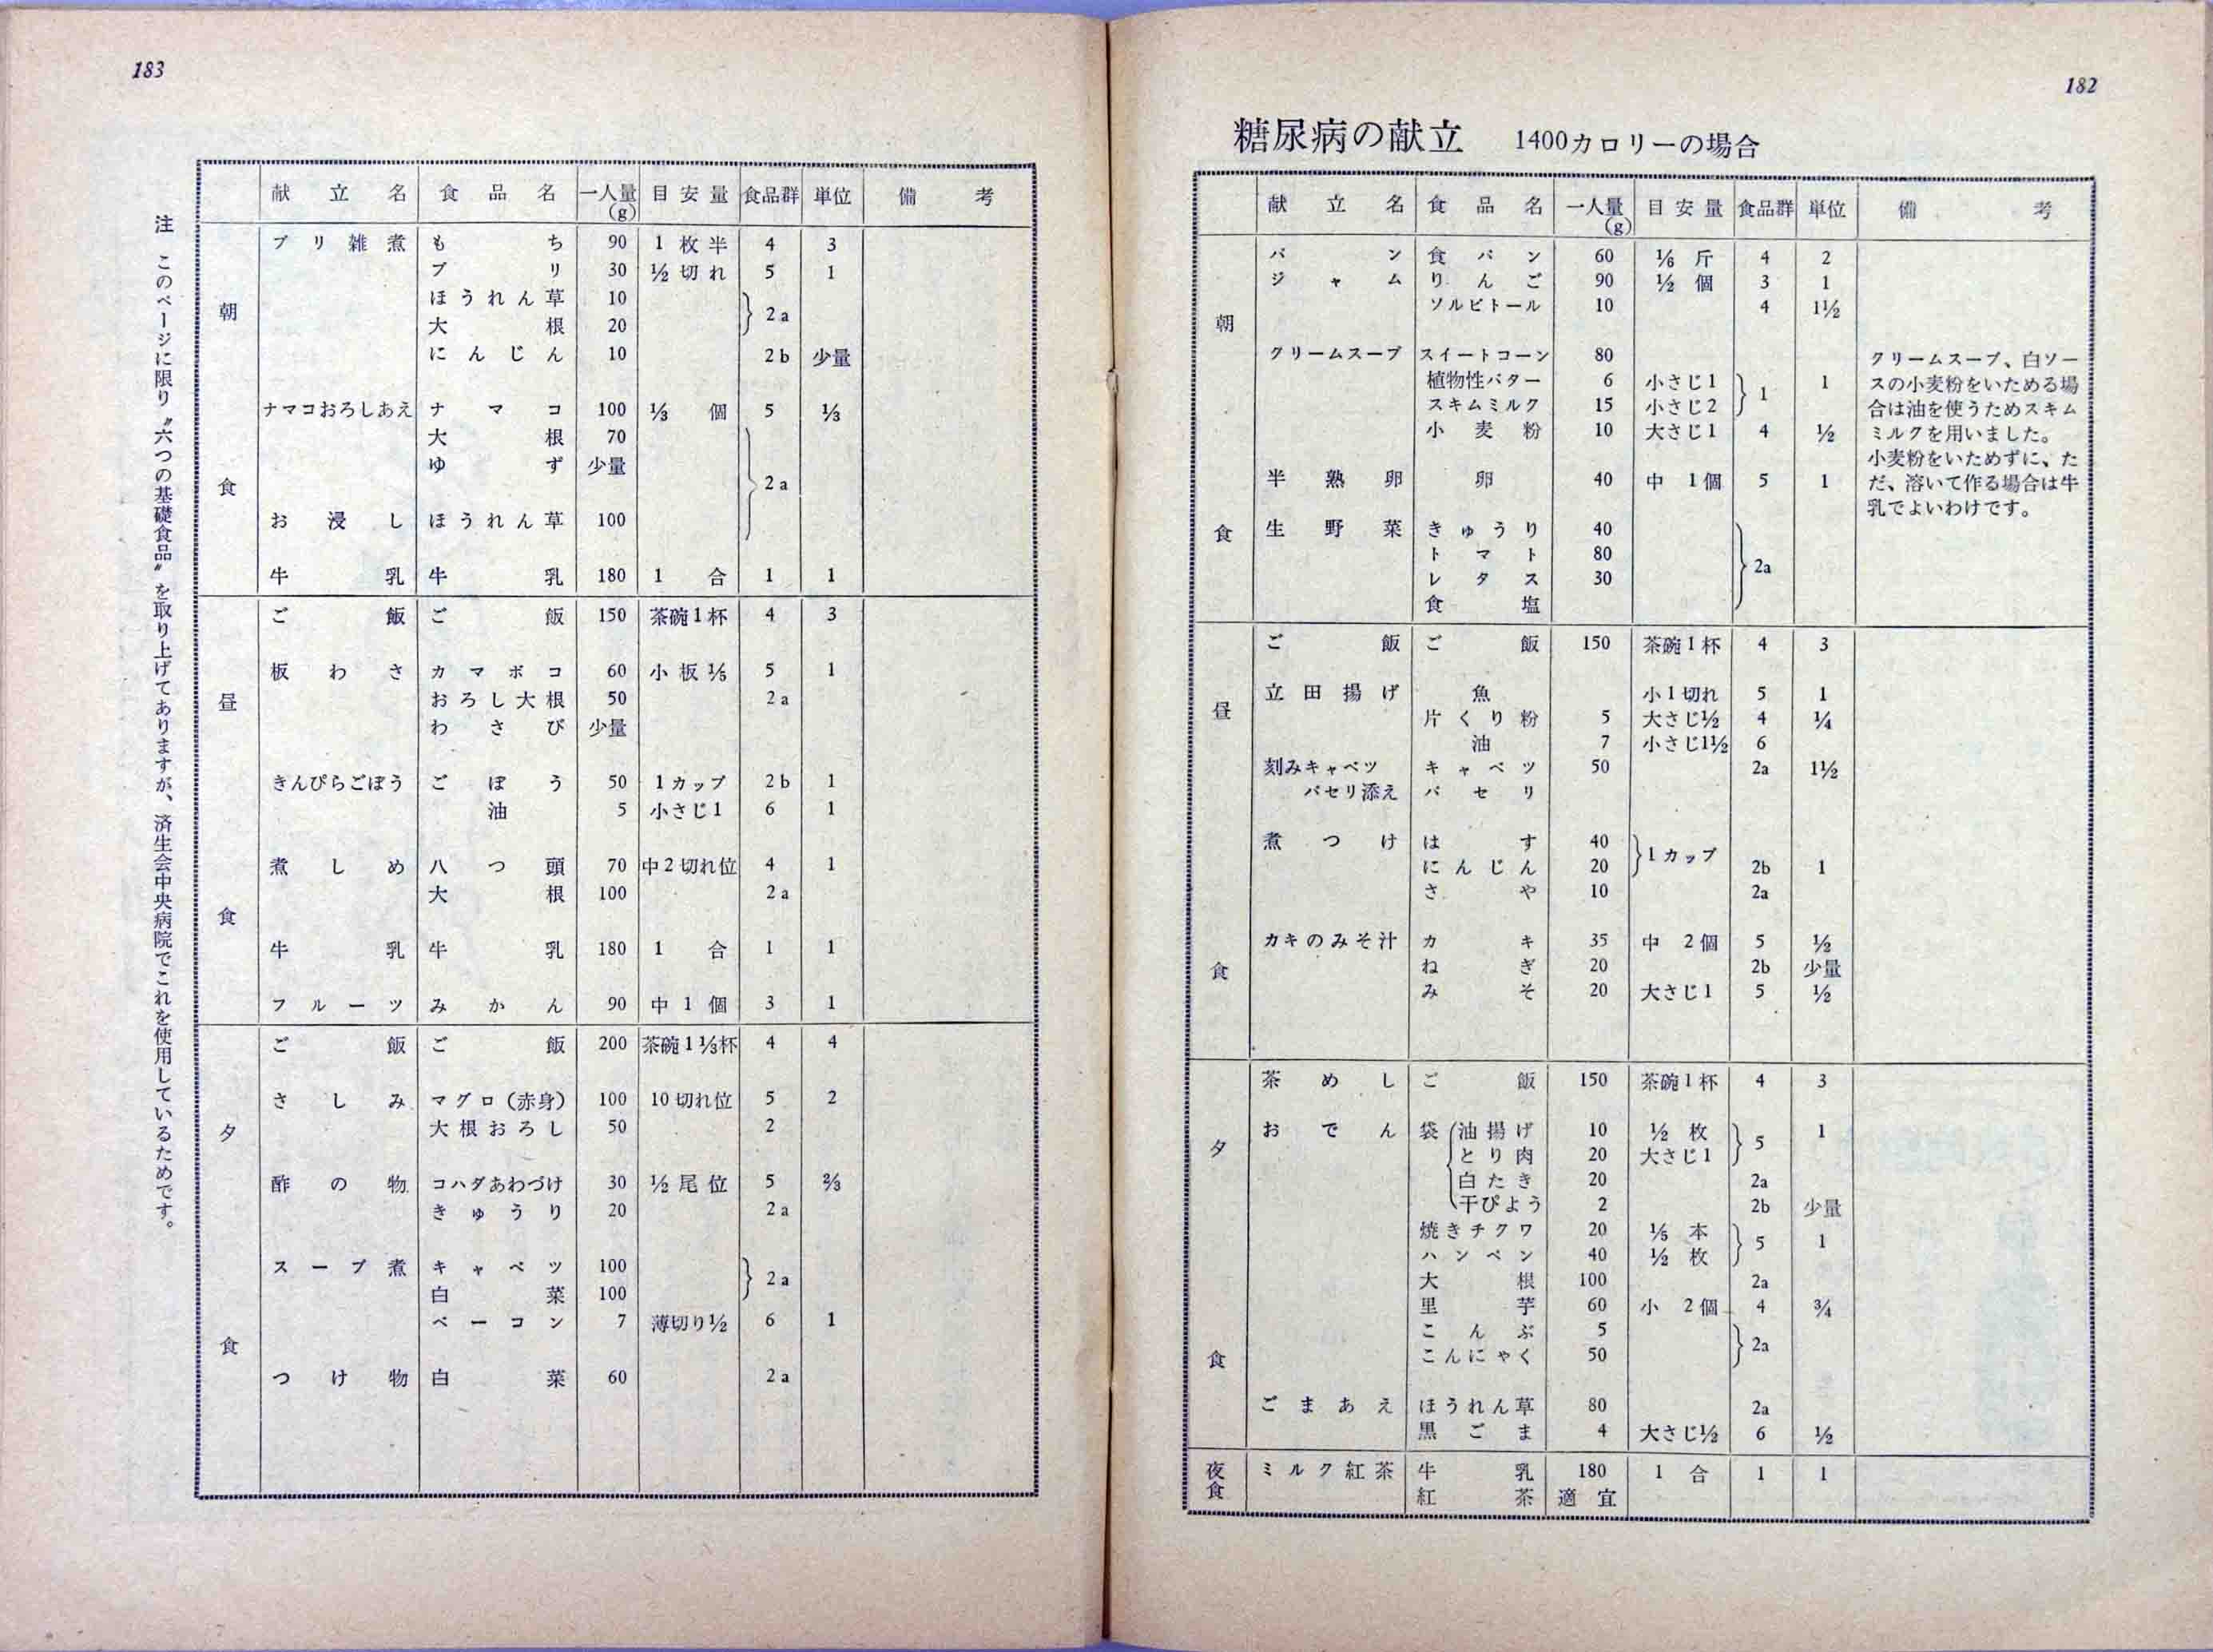 182
糖尿病の献立 1400カロリーの場合
献立名 食品名 一人量(g) 目安量 食品群 単位 備考
朝食
パン 食パン 60 1/6斤 4 2
ジャム りんご 90 1/2個 3 1
ソルビトール 10 4 1 1/2
クリームスープ スイートコーン 80
植物性バター 6 小さじ1 1 1
スキムミルク 15 小さじ2
小麦粉 10 大さじ1 4 1/2
半熟卵 卵 40 中1個 5 1
生野菜 きゅうり 40
トマト 80 2a
レタス 30
食塩
クリームスープ、白ソー
スの小麦粉をいためる場
合は油を使うためスキム
ミルクを用いました。
小麦粉をいためずに、た
だ、溶いて作る場合は牛
乳でよいわけです。
昼食
ご飯 ご飯 150 茶碗1杯 4 3
立田揚げ 魚 小1切れ 5 1
片くり粉 5 大さじ1/2 4 1/4
油 7 小さじ1 1/2 6
刻みキャベツ キャベツ 50 2a 1 1/2
パセリ添え パセリ
煮つけ はす 40 1カップ
にんじん 20 2b 1
さや 10 2a
カキのみそ汁 カキ 35 中2個 5 1/2
ねぎ 20 2b 少量
みそ 20 大さじ1 5 1/2
夕食
茶めし ご飯 150 茶碗1杯 4 3
おでん 袋 油揚げ 10 1/2枚 5 1
とり肉 20 大さじ1
白たき 20 2a
干ぴよう 2 2b 少量
焼きチクワ 20 1/5本 5 1
ハンペン 40 1/2枚
大根 100 2a
里芋 60 小2個 4 3/4
こんぶ 5 2a
こんにゃく 50
ごまあえ ほうれん草 80 2a
黒ごま 4 大さじ1/2 6 1/2
夜食
ミルク紅茶 牛乳 180 1合 1 1
紅茶 適宜
183
献立名 食品名 一人量(g) 目安量 食品群 単位 備考
朝食
ブリ雑煮 もち 90 1枚半 4 3
ブリ 30 1/2切れ 5 1
ほうれん草 10 2a
大根 20
にんじん 10 2b 少量
ナマコおろしあえ ナマコ 100 1/3個 5 1/3
大根 70
ゆず 少量 2a
お浸し ほうれん草 100
牛乳 牛乳 180 1合 1 1
昼食
ご飯 ご飯 150 茶碗1杯 4 3
板わさ カマボコ 60 小板1/5 5 1
おろし大根 50 2a
わさび 少量
きんぴらごぼう ごぼう 50 1カップ 2b 1
油 5 小さじ1 6 1
煮しめ 八つ頭 70 中2切れ位 4 1
大根 100 2a
牛乳 牛乳 180 1合 1 1
フルーツ みかん 90 中1個 3 1
夕食
ご飯 ご飯 200 茶碗1 1/3杯 4 4
さしみ マグロ(赤身) 100 10切れ位 5 2
大根おろし 50 2
酢の物 コハダあわづけ 30 1/2尾位 5 2/3
きゅうり 20 2a
スープ煮 キャベツ 100 2a
白菜 100
ベーコン 7 薄切り1/2 6 1
つけ物 白菜 60 2a
注 このページに限り〝六つの基礎食品〟を取り上げてありますが、済生会中央病院でこれを使用しているためです。